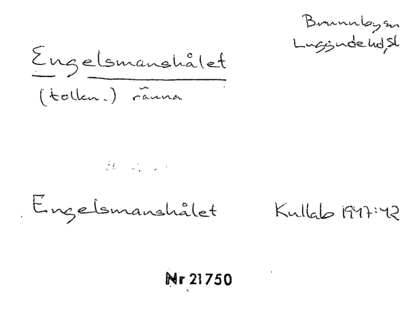 Brunnbyn
Luggude hd, Sk
Engelsmanshålet
(tolkn.) ränna
Engelsmanshålet Kullab 1947:42
Nr 21750